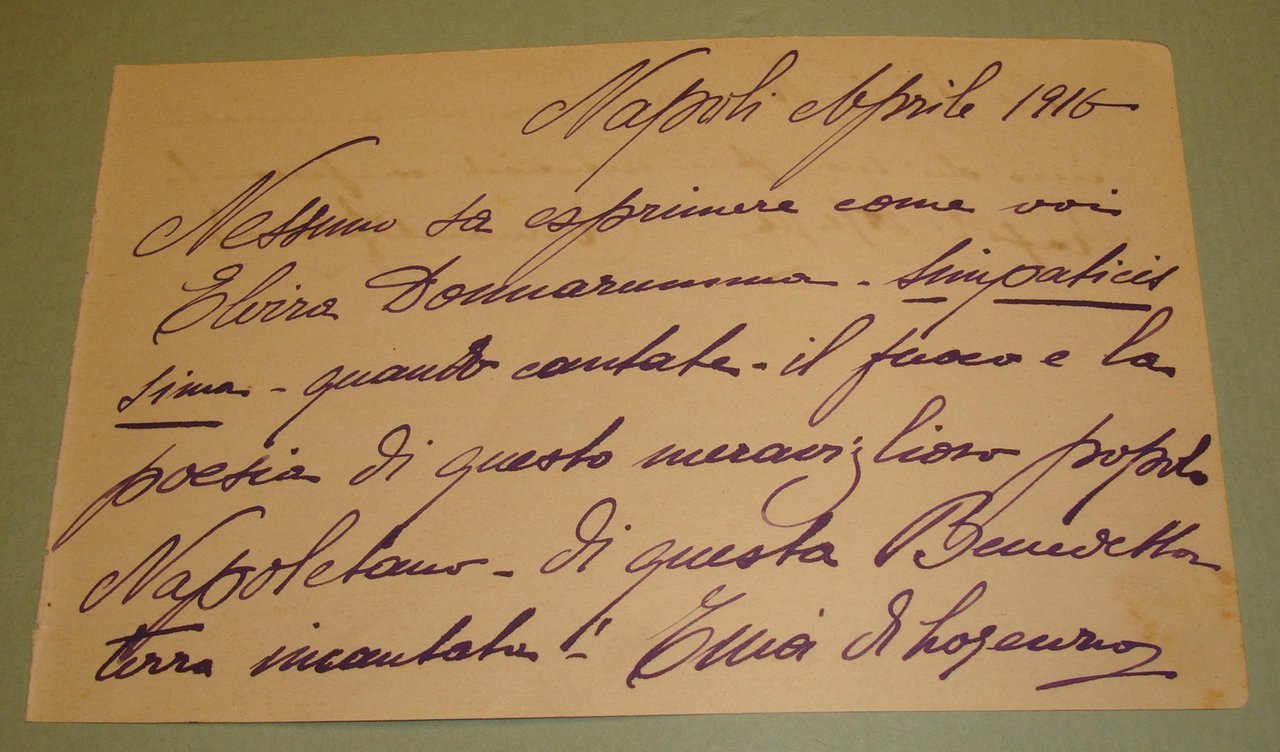 Napoli Aprile 1916
Nessuno sa esprimere come voi
Elvira Donnarumma - simpaticis
sima - quando cantate - il fuoco e la
poesia di questo meraviglioso popolo
Napoletano - di questa Benedetta
terra incantata!